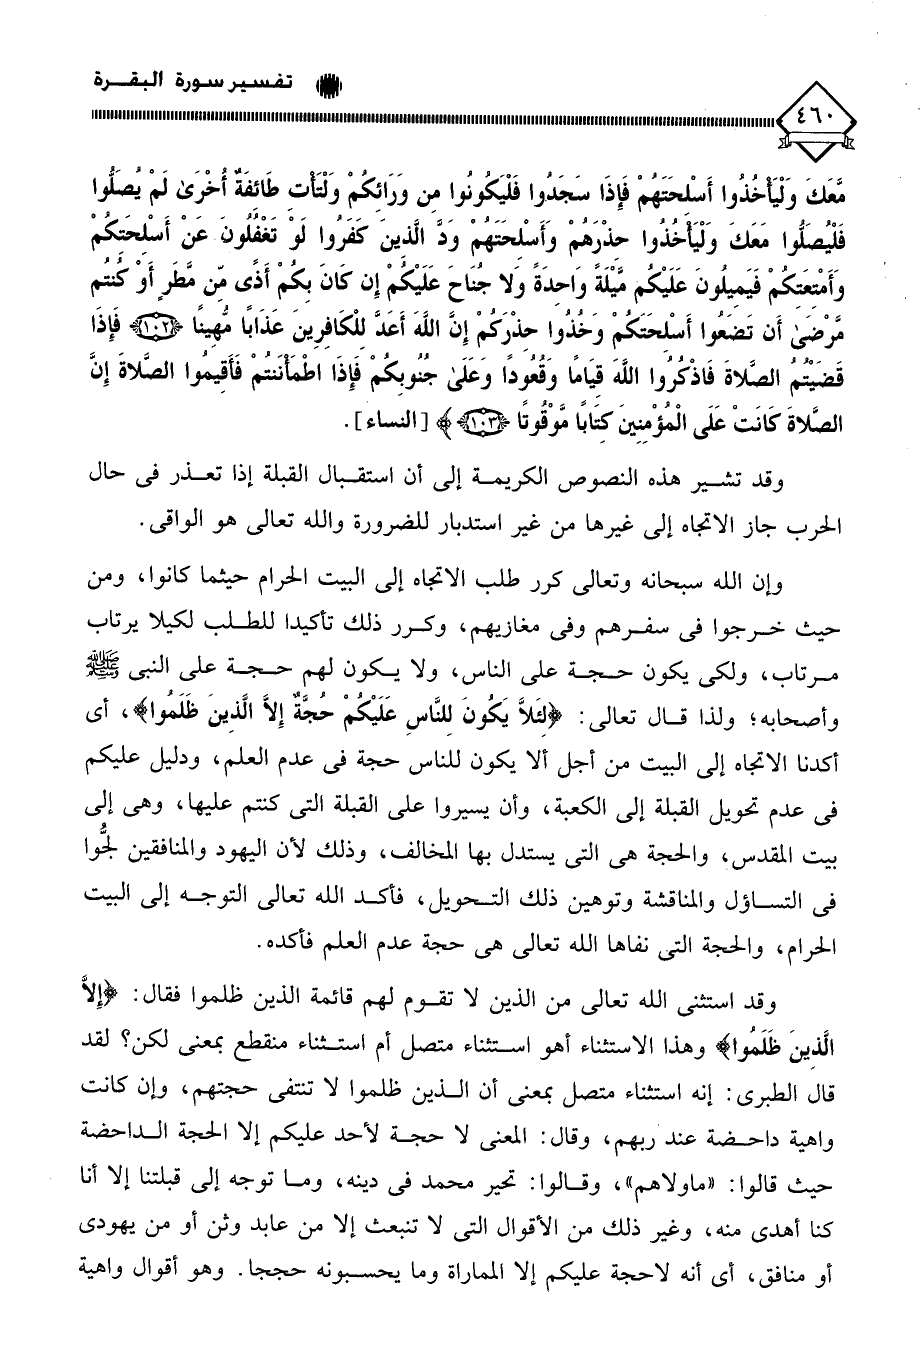 تفسير سورة البقرة
٤٦٠
مَّعَكَ وَلْيَأْخُذُوا أَسْلِحَتَهُمْ فَإِذَا سَجَدُوا فَلْيَكُونُوا مِن وَرَائِكُمْ وَلْتَأْتِ طَائِفَةٌ أُخْرَىٰ لَمْ يُصَلُّوا
فَلْيُصَلُّوا مَعَكَ وَلْيَأْخُذُوا حِذْرَهُمْ وَأَسْلِحَتَهُمْ وَدَّ الَّذِينَ كَفَرُوا لَوْ تَغْفُلُونَ عَنْ أَسْلِحَتِكُمْ
وَأَمْتِعَتِكُمْ فَيَمِيلُونَ عَلَيْكُم مَّيْلَةً وَاحِدَةً وَلا جُنَاحَ عَلَيْكُمْ إِن كَانَ بِكُمْ أَذًى مِّن مَّطَرٍ أَوْ كُنتُم
مَّرْضَىٰ أَن تَضَعُوا أَسْلِحَتَكُمْ وَخُذُوا حِذْرَكُمْ إِنَّ اللَّهَ أَعَدَّ لِلْكَافِرِينَ عَذَابًا مُّهِينًا ﴿١٠٢﴾ فَإِذَا
قَضَيْتُمُ الصَّلاةَ فَاذْكُرُوا اللَّهَ قِيَامًا وَقُعُودًا وَعَلَىٰ جُنُوبِكُمْ فَإِذَا اطْمَأْنَنتُمْ فَأَقِيمُوا الصَّلاةَ إِنَّ
الصَّلاةَ كَانَتْ عَلَى الْمُؤْمِنِينَ كِتَابًا مَّوْقُوتًا ﴿١٠٣﴾ ﴾ [النساء].
وقد تشير هذه النصوص الكريمة إلى أن استقبال القبلة إذا تعذر فى حال
الحرب جاز الاتجاه إلى غيرها من غير استدبار للضرورة والله تعالى هو الواقى.
وإن الله سبحانه وتعالى كرر طلب الاتجاه إلى البيت الحرام حيثما كانوا، ومن
حيث خرجوا فى سفرهم وفى مغازيهم، وكرر ذلك تأكيدا للطلب لكيلا يرتاب
مرتاب، ولكى يكون حجة على الناس، ولا يكون لهم حجة على النبى ﷺ
وأصحابه؛ ولذا قال تعالى: ﴿لِئَلاَّ يَكُونَ لِلنَّاسِ عَلَيْكُمْ حُجَّةٌ إِلاَّ الَّذِينَ ظَلَمُوا﴾، أى
أكدنا الاتجاه إلى البيت من أجل ألا يكون للناس حجة فى عدم العلم، ودليل عليكم
فى عدم تحويل القبلة إلى الكعبة، وأن يسيروا على القبلة التى كنتم عليها، وهى إلى
بيت المقدس، والحجة هى التى يستدل بها المخالف، وذلك لأن اليهود والمنافقين لجُّوا
فى التساؤل والمناقشة وتوهين ذلك التحويل، فأكد الله تعالى التوجه إلى البيت
الحرام، والحجة التى نفاها الله تعالى هى حجة عدم العلم فأكده.
وقد استثنى الله تعالى من الذين لا تقوم لهم قائمة الذين ظلموا فقال: ﴿إِلاَّ
الَّذِينَ ظَلَمُوا﴾ وهذا الاستثناء أهو استثناء متصل أم استثناء منقطع بمعنى لكن؟ لقد
قال الطبرى: إنه استثناء متصل بمعنى أن الذين ظلموا لا تنتفى حجتهم، وإن كانت
واهية داحضة عند ربهم، وقال: المعنى لا حجة لأحد عليكم إلا الحجة الداحضة
حيث قالوا: «ماولاهم»، وقالوا: تحير محمد فى دينه، وما توجه إلى قبلتنا إلا أنا
كنا أهدى منه، وغير ذلك من الأقوال التى لا تنبعث إلا من عابد وثن أو من يهودى
أو منافق، أى أنه لاحجة عليكم إلا المماراة وما يحسبونه حججا. وهو أقوال واهية